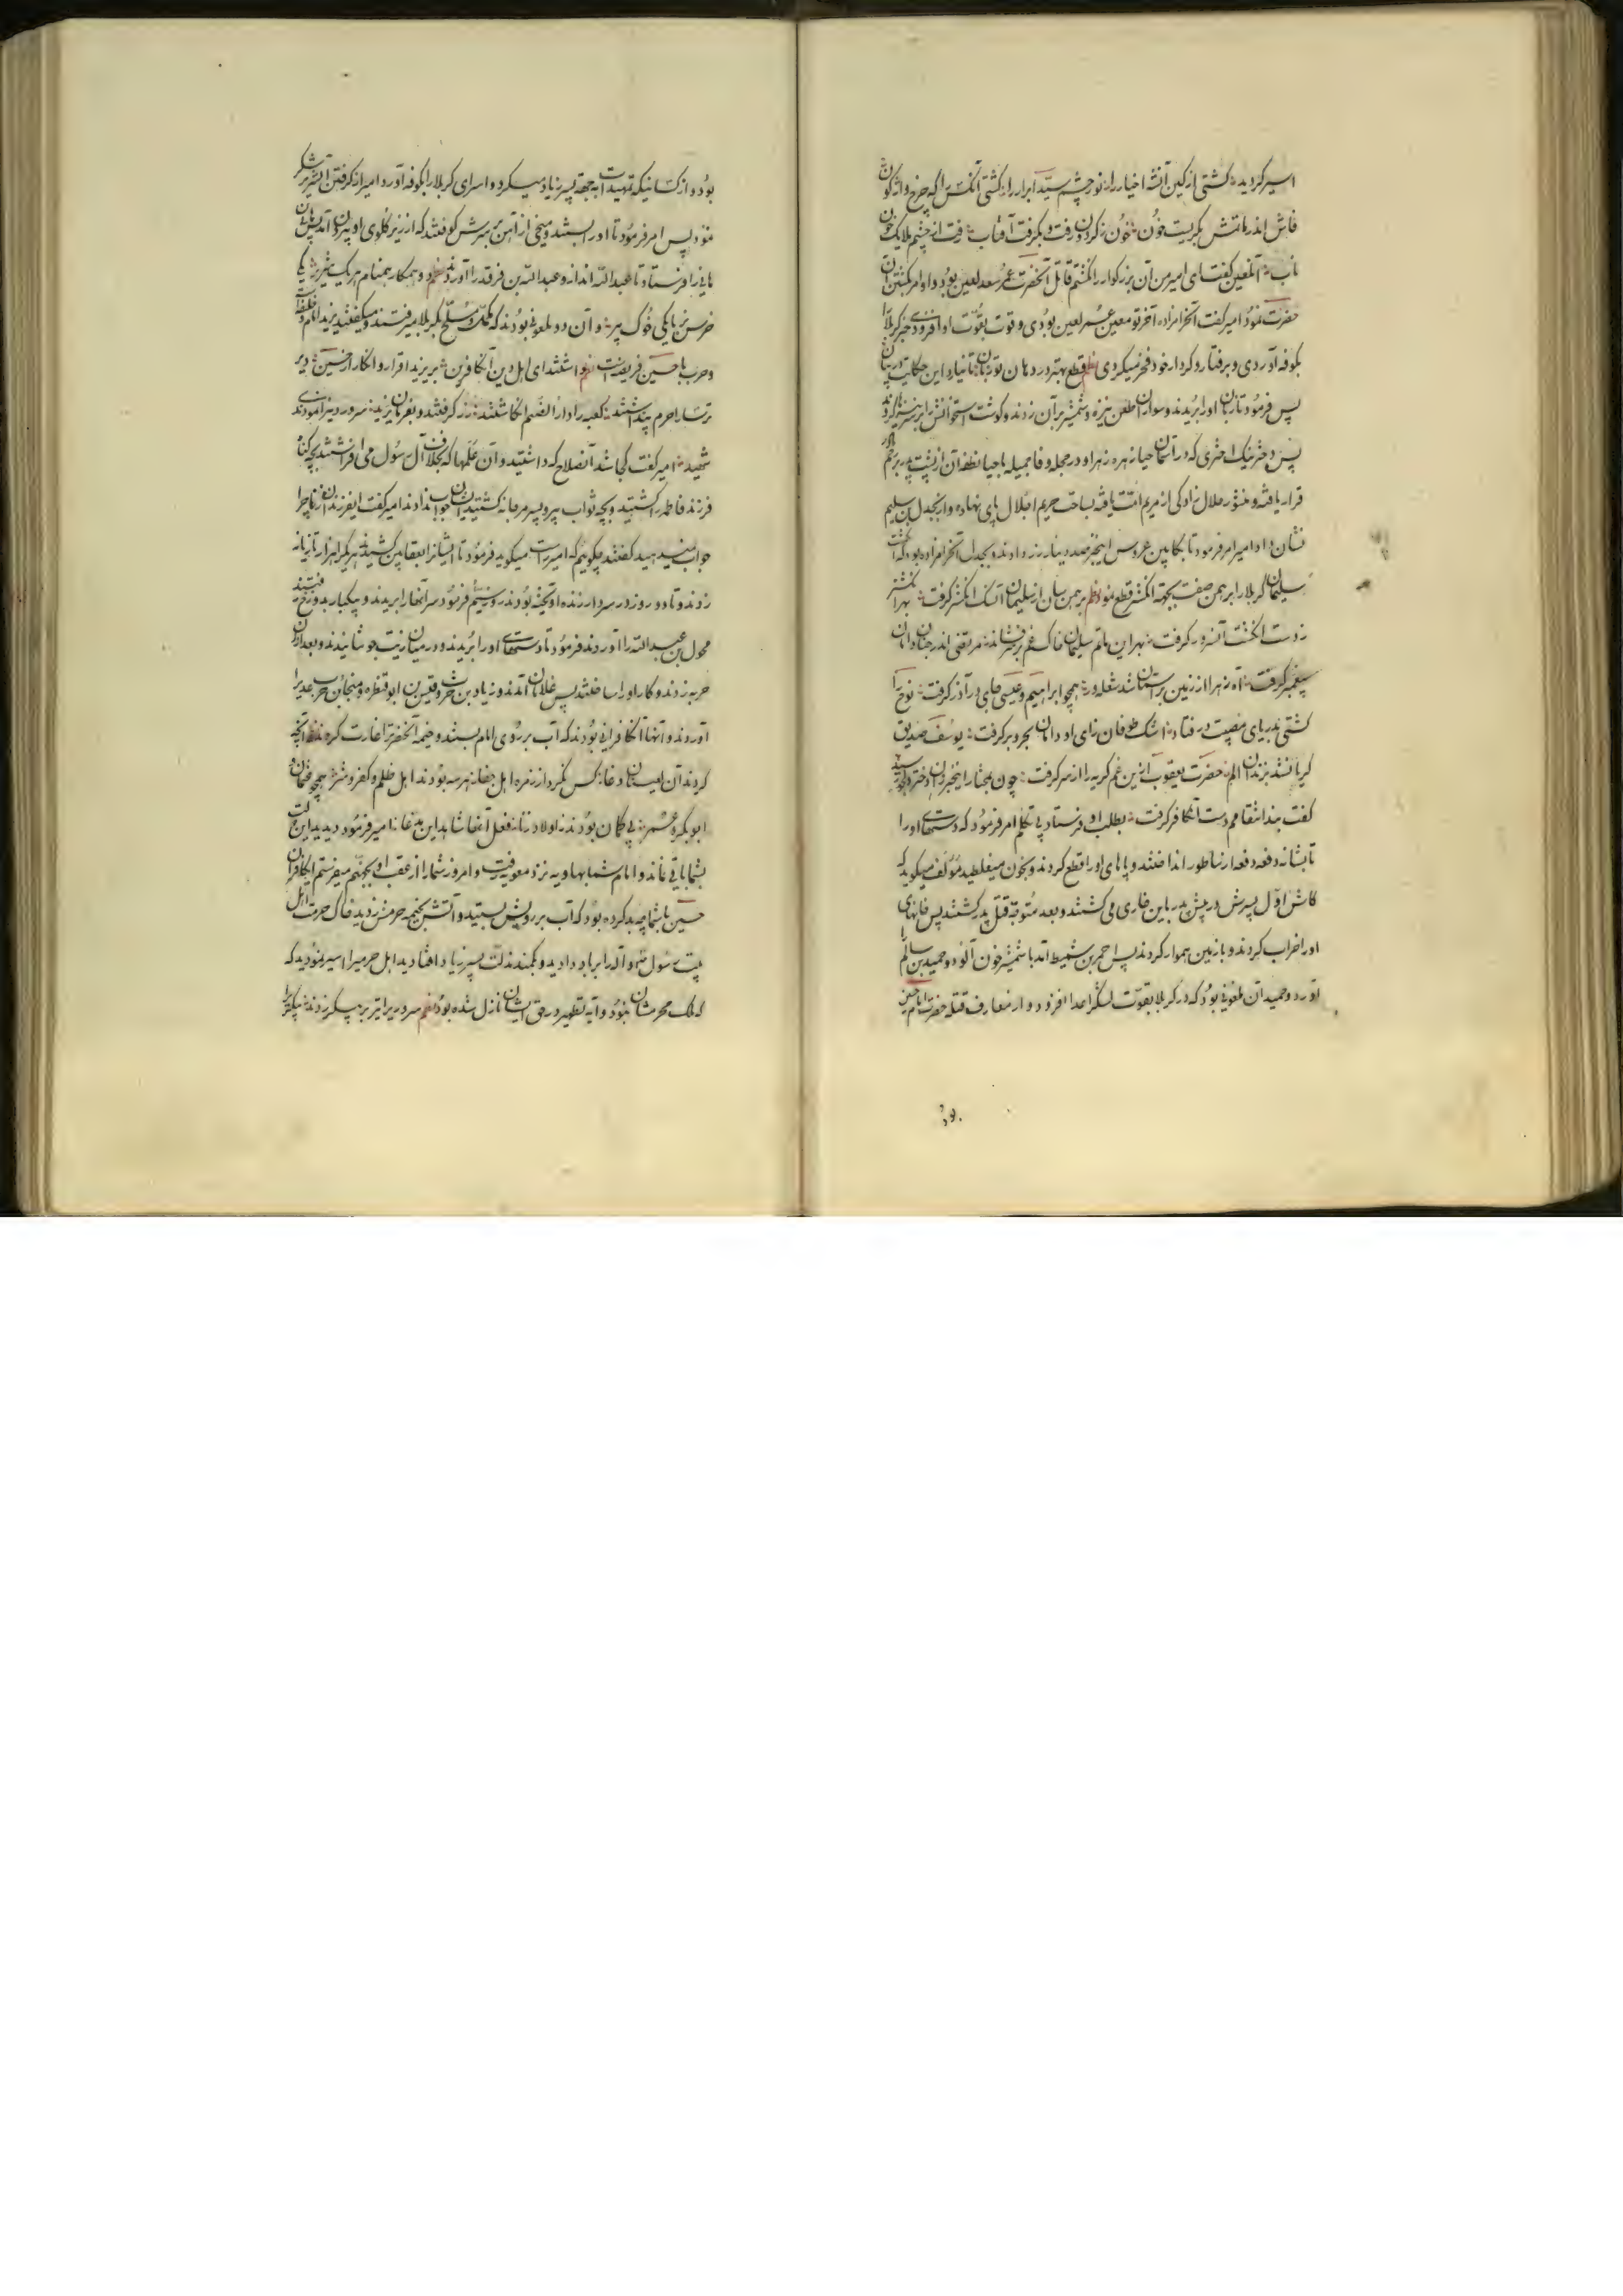 اسیر کردید کشتی از کین آنشه اخیار را نور چشم سید ابرار را کشتی آنکس را که چرخ واژگون
فاش اندر ماتمش بگریست خون خون ز گردون رفت و بگرفت آفتاب رفت از چشم ملایک خون
ناب آنلعین گفت ای امیر من آن بزرگوار را نکشتم قاتل آنحضرت عمر سعد لعین بود و او امر بکشتن آن
حضرت نمود امیر گفت آنحرامزاده آخر تو معین عمر لعین بودی و قوت بقوت او افزودی خبر کربلا
بکوفه آوردی و برفتار و کردار خود فخر میکردی نظم قطع بهتر در دهان تو زبان تا نیارد این حکایت در بیان
پس فرمود تا زبان او را بریدند و سواران طعن نیزه و شمشیر بر آن زدند و گوشت استخوانش را ریز ریز کردند
پس دختر نیک اختری که در آسمان حیا زهره زهرا و در حجله وفا جمیله با حیا نطفه آن از پشت پدر برحم
قرار یافته و منشور حلال زادگی از مریم امت یافته بساحت حریم اجلال پای نهاده و ابجدل بن سلیم
نشان داد امیر امر فرمود تا بکابین عروس اینخبر صد دینار زر دادند و بجدل آنحرامزاده بود که انگشت
سلیمان کربلا را برهمن صفت بجهة انگشتر قطع نمود نظم برهمن سان از سلیمان آنسگ انگشتر گرفت بهر انگشتر
ز دست انگشت آنسرور گرفت بهر این ماتم سلیمان خاک غم بر سر فشاند مرتضی اندر جنان دامان
پیغمبر گرفت آه زهرا از زمین بر آسمان شد شعله ور همچو ابراهیم و عیسی جای در آذر گرفت نوح را
کشتی بدریای مصیبت در فتاد اشک طوفان زای او دامان بحر و بر گرفت یوسف صدیق
گریانشد بزندان الم حضرت یعقوب از این غم گریه را از سر گرفت چون بمختار اینخبر از آن دختر نیکو رسید
گفت بند انتقامم دست آنکافر گرفت بطلب او فرستاد بی تکلم امر فرمود که دستهای او را
تا بشانه دفعه دفعه ارّ ساطور انداختند و پاهای او را قطع کردند و بخون میغلطید مؤلف میگوید که
کاش اول پسرش در پیش پدر باین خاری می کشتند و بعد متوجه قتل پدر گشتند پس خانهای
او را خراب کردند و با زمین هموار کردند پس احمر بن شمیط آمد با شمشیر خون آلود و حمید بن سالم را
آورد و حمید آن ملعونی بود که در کربلا بقوت لشگر اعدا افزود و از معارف قتله حضرت امام حسین
بود و از کسانیکه تمهیدات بجهة پسر زیاد میکرد و اسرای کربلا را بکوفه آورد امیر از گرفتن آنشریر شکر
نمود پس امر فرمود تا او را بستند و میخی از آهن بر سرش کوفتند که از زیر گلوی او بیرون آمد پس هانی
هانی را فرستاد تا عبدالله انداز و عبدالله بن فرقد را آوردند نظم دو همکار همنام هر یک شریر یکی
خرس نر با یکی خوک پیر و آن دو ملعونی بودند که مکمل و مسلح بکربلا میرفتند و میگفتند یزید امام و خلیفه است
و حرب با حسین فریضه است نظم داشتند ای اهل دین آنکافرین بر یزید اقرار و انکار از حسین دیر
ترسا را حرم پنداشتند کعبه را دار الصنم انکاشتند زر گرفتند و بفرمان یزید سرور دینرا نمودندی
شهید امیر گفت کجا شد آنصلاح که داشتید و آن علمها که بخلاف آل رسول می افراشتید بچه گناه
فرزند فاطمه را کشتید و بچه ثواب پیرو پسر مرجانه گشتید ایشان جواب ندادند امیر گفت ایفرزندان زنا چرا
جواب نمیدهید گفتند چگوئیم که امیر راست میگوید فرمود تا ایشانرا بعقابین کشیدند هر یکرا هزار تازیانه
زدند و تا دو روز در سر دار زنده آویخته بودند روز سیّم فرمود سر آنها را بریدند و پیکبار بدوزخ رفتند
محول بن عبدالله را آوردند فرمود تا دستهای او را بریدند و در میان زیت جوشانیدند و بعد از آن
حربه زدند و کار او را ساختند پس غلامان آمدند و زیاد بن حر و قیس بن ابو قنطره و منجان حرب عدیرا
آوردند و آنها آنکافرانی بودند که آب بر روی امام بستند و خیمه آنحضرترا غارت کردند نظم آنچه
کردند آن لعینان دغا کس نکرد از زمره اهل جفا هر سه بودند اهل ظلم و کفر و شر همچو عثمان و
ابوبکر و عمر بی گمان بودند ز اولاد زنا فعل آنها شاهد این مدعا امیر فرمود دیدید این دولت
بشما باقی نماند و امام شما بهاویه نزد معویه رفت و امروز شما را از عقب او بجهنم میفرستم ایکافران
حسین با شما چه بد کرده بود که آب بر رویش بستید و آتش بخیمه حرمش زدید خاک حرمت اهل
بیت رسول خدا و آله را بر باد دادید و بکمند مذلت پسر زیاد افتادید اهل حرمیرا اسیر نمودید که
که ملک محرمشان نبود و آیه تطهیر در حق ایشان نازل شده بود نظم سرور دیرا تیر بر پیکر زدند پیکر را